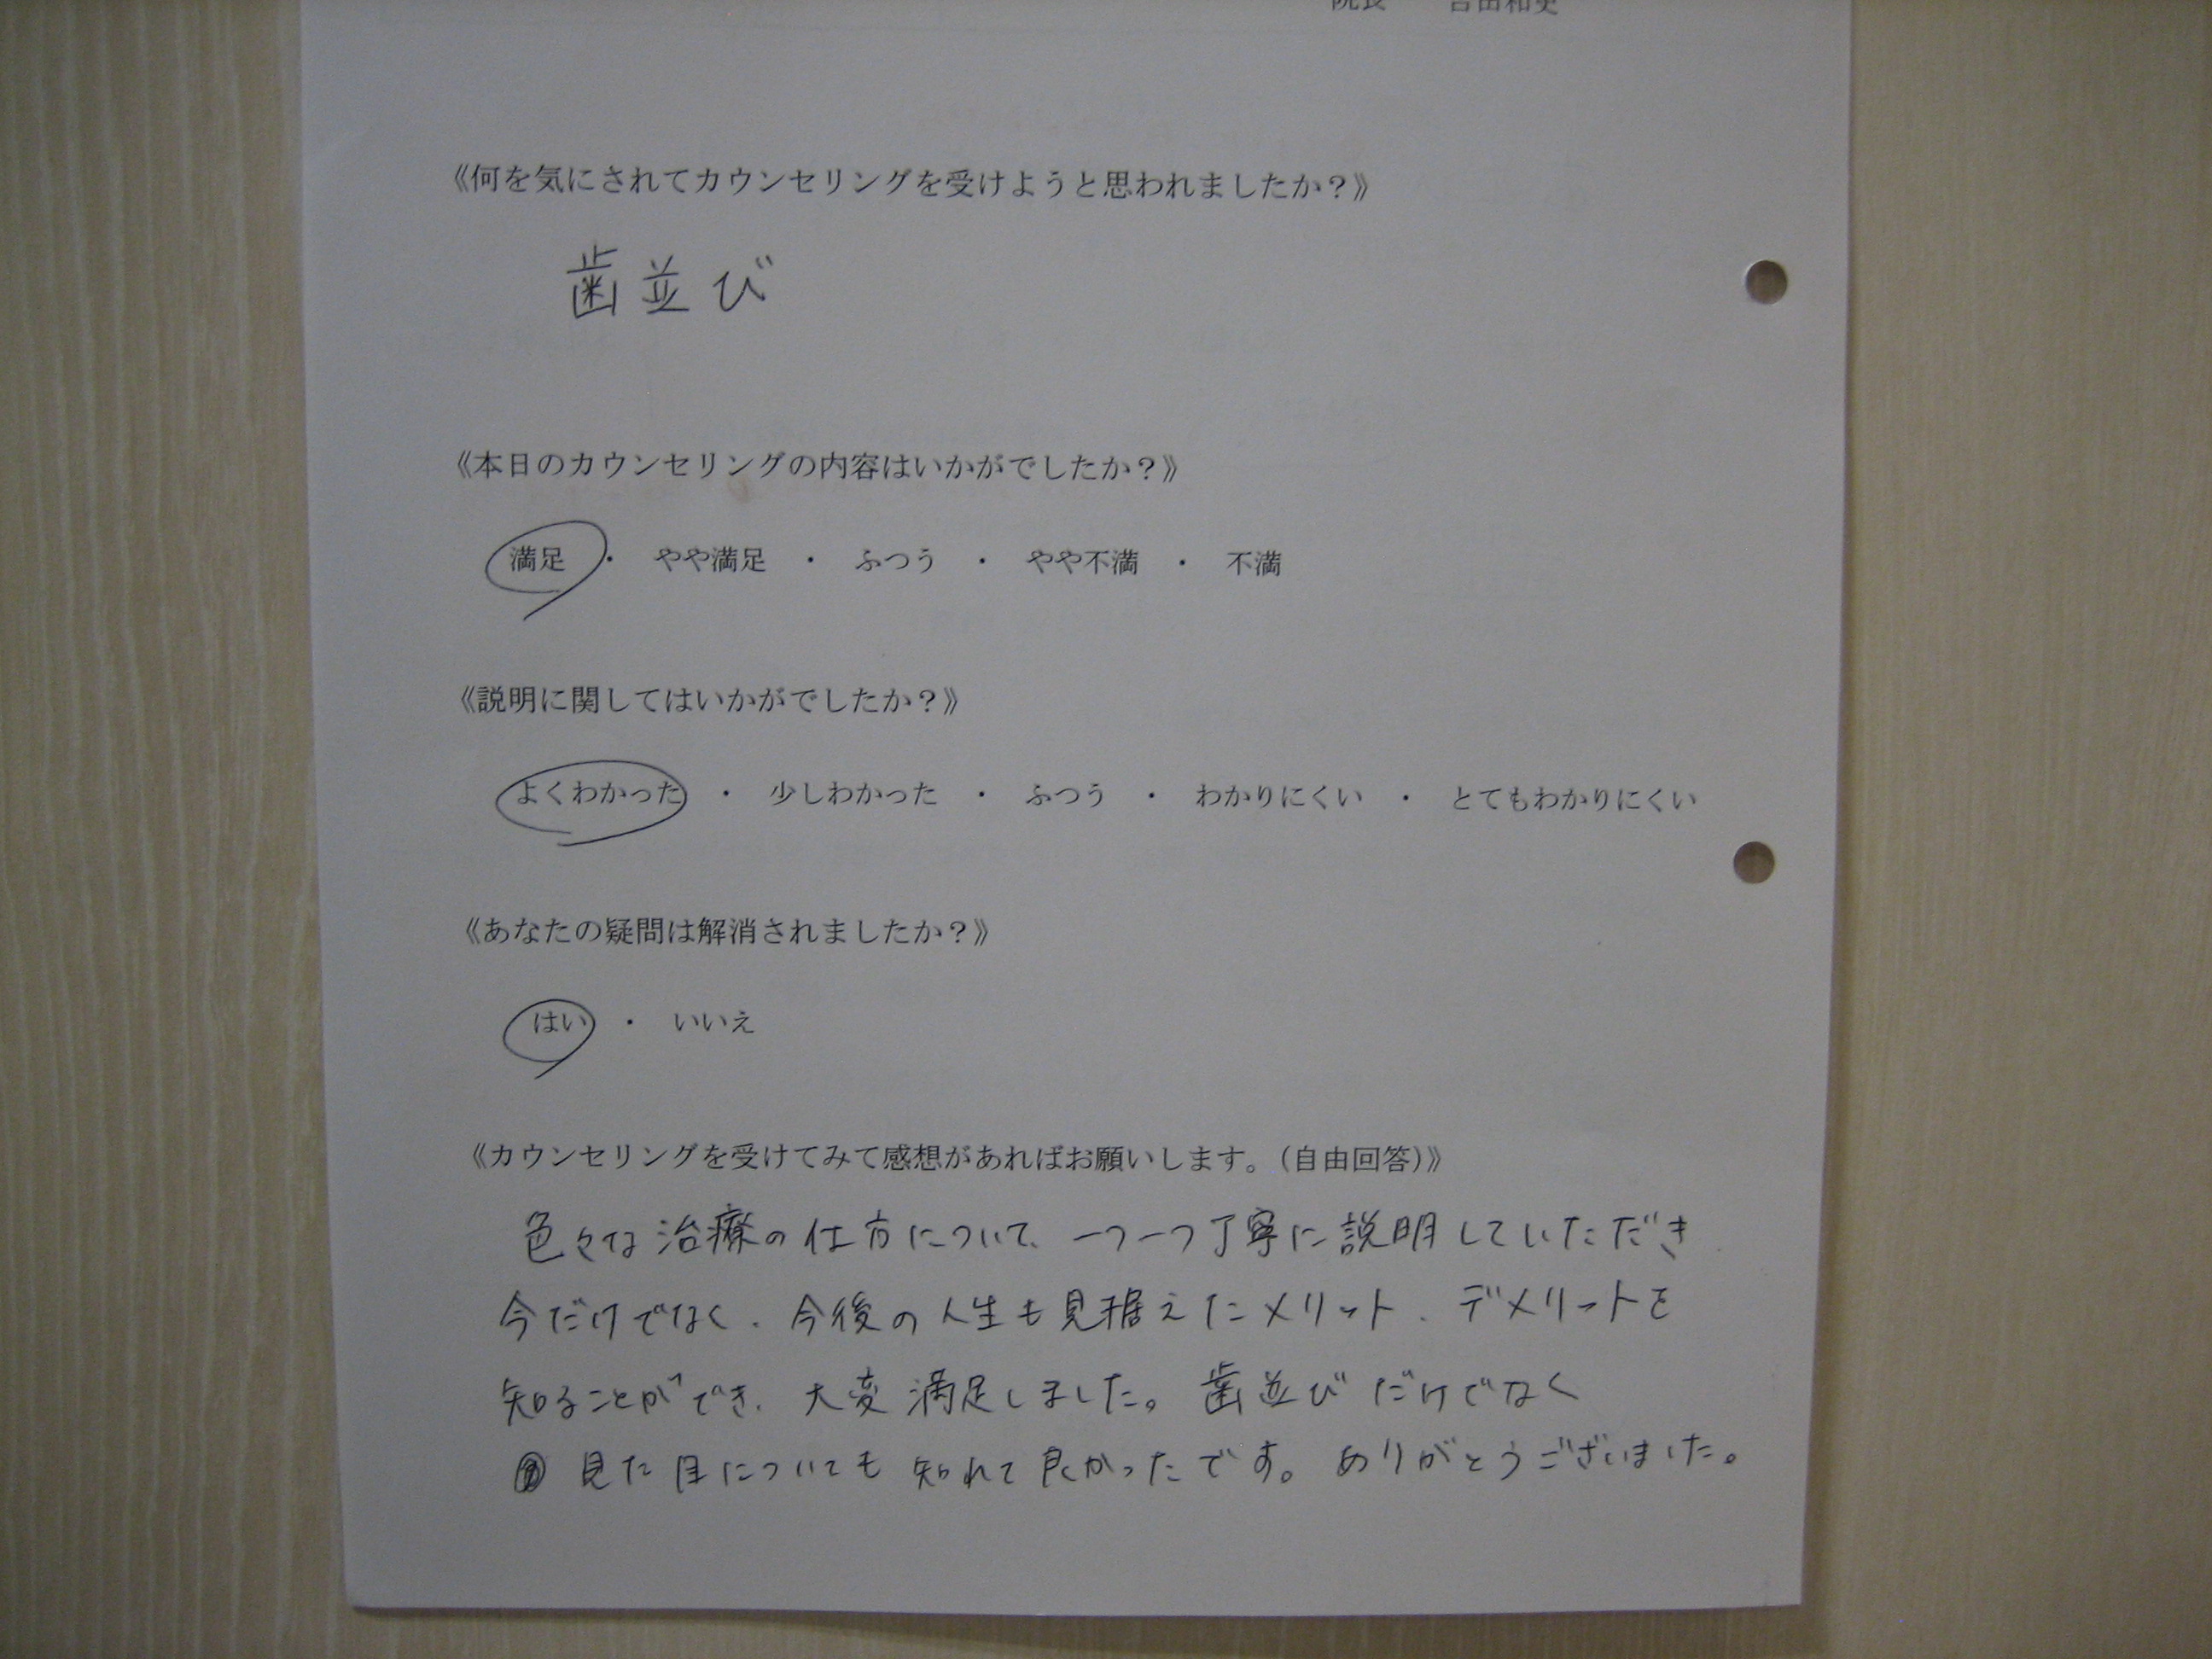 院長 吉田和史
《何を気にされてカウンセリングを受けようと思われましたか？》
歯並び
《本日のカウンセリングの内容はいかがでしたか？》
満足 ・ やや満足 ・ ふつう ・ やや不満 ・ 不満
《説明に関してはいかがでしたか？》
よくわかった ・ 少しわかった ・ ふつう ・ わかりにくい ・ とてもわかりにくい
《あなたの疑問は解消されましたか？》
はい ・ いいえ
《カウンセリングを受けてみて感想があればお願いします。（自由回答）》
色々な治療の仕方について、一つ一つ丁寧に説明していただき
今だけでなく、今後の人生も見据えたメリット、デメリットを
知ることができ、大変満足しました。歯並びだけでなく
見た目についても知れて良かったです。ありがとうございました。